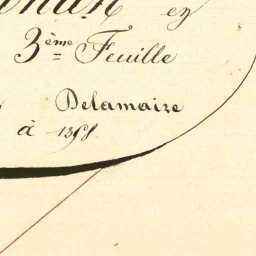 en
3ème Feuille
Delamaire
à